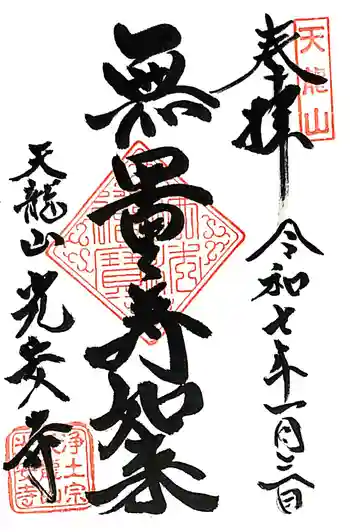 天龍山
奉拝
令和七年一月二日
無量寿如来
天龍山光安寺
浄土宗
天龍山
光安寺